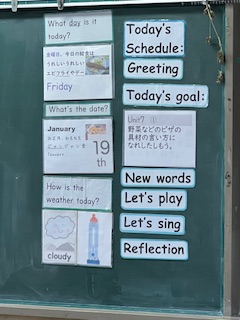 What day is it
today?
金曜日、今日の給食は
うれしいうれしい
エビフライやデー
Friday
What's the date?
January
19
th
How is the
weather today?
cloudy
Today's
Schedule:
Greeting
Today's goal:
Unit7 ①
野菜などのピザの
具材の言い方に
なれしたしもう。
New words
Let's play
Let's sing
Reflection